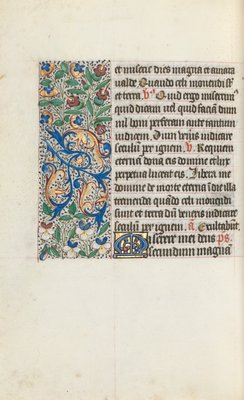 et miserie dies magna et amara
valde. Quando celi movendi st̄
et terra. v̄. Quid ergo miserrim9
quid dicam vel quid faciā dum
nil boni perferam ante tantum
iudicem. Dum veneris iudicare
seculū per ignem. v̄. Requiem
eternā dona eis domine et lux
perpetua luceat eis. Libera me
domine de morte eterna i die illa
tremenda quādo celi movendi
sunt et terra dū veneris iudicare
seculū per ignem. a. Exultabūt.
Miserere mei deus ps.
secundum magnā